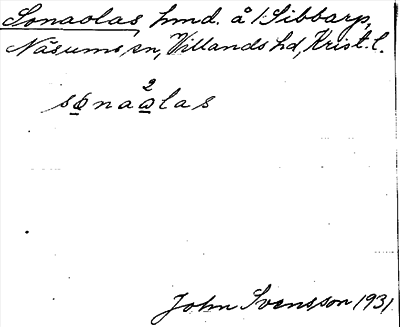 Sonaolas, hmd. å 1 Sibbarp,
Näsums sn, Villands hd, Krist. l.
sɷnaàlas
John Svensson 1931